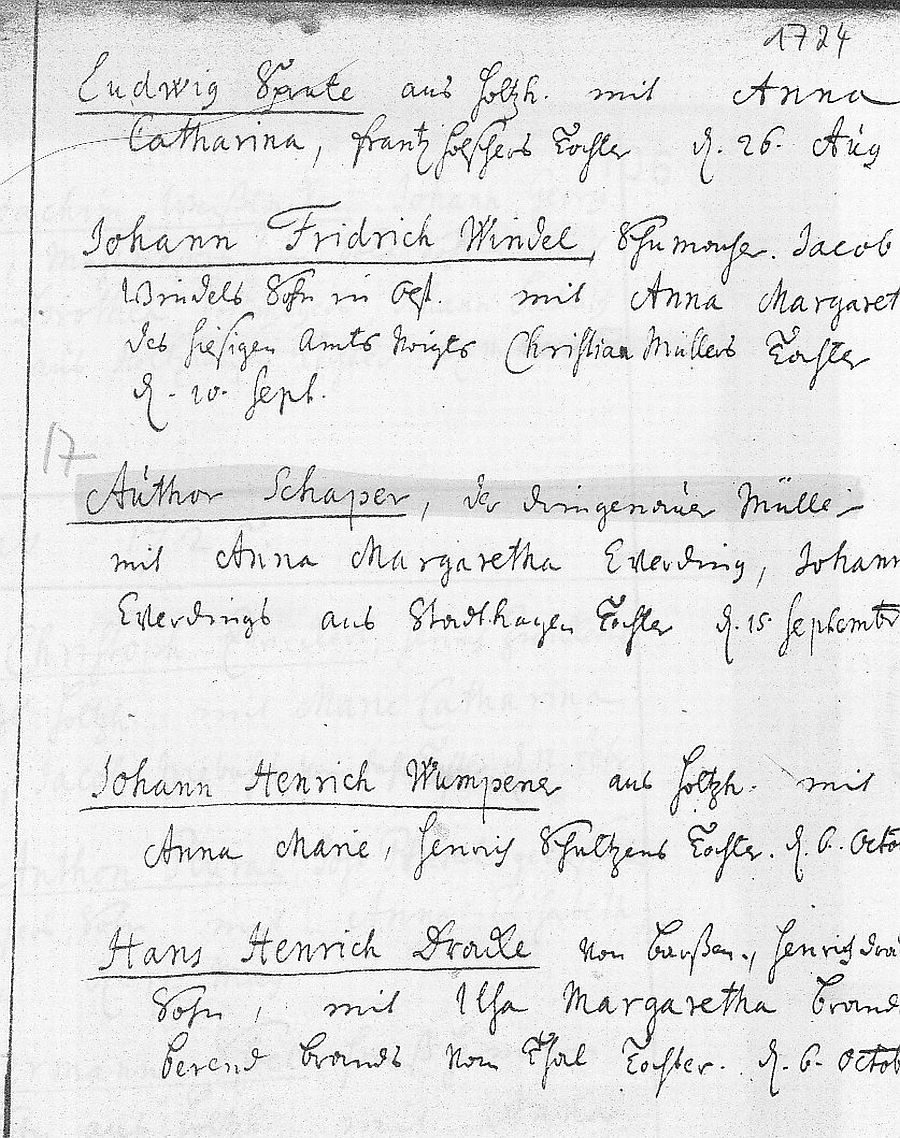 1724
Ludwig Spute aus Holtzh. mit Anna
Catharina, Frantz Hölschers Tochter d. 26. Aug
Johann Fridrich Windel, Schumacher. Jacob
Windels Sohn in mit Anna Margaret
des hiesigen Amts Voigts Christian Müllers Tochter
d. 10. Sept.
17
Author Schaper, der dringenauer Müller
mit Anna Margaretha Everding, Johann
Everdings aus Stadthagen Tochter d. 15 Septembr
Johann Henrich Wümpener aus Holtzh. mit
Anna Marie, Henrich Schultzens Tochter. d. 6. Octo
Hans Henrich Dracke von Barßen., Henrich Dra
Sohn, mit Ilsa Margaretha Brand
Berend Brands vom Thal Tochter. d. 6. Octob